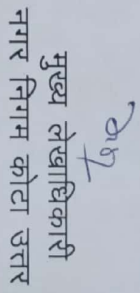 मुख्य लेखाधिकारी
नगर निगम कोटा उत्तर